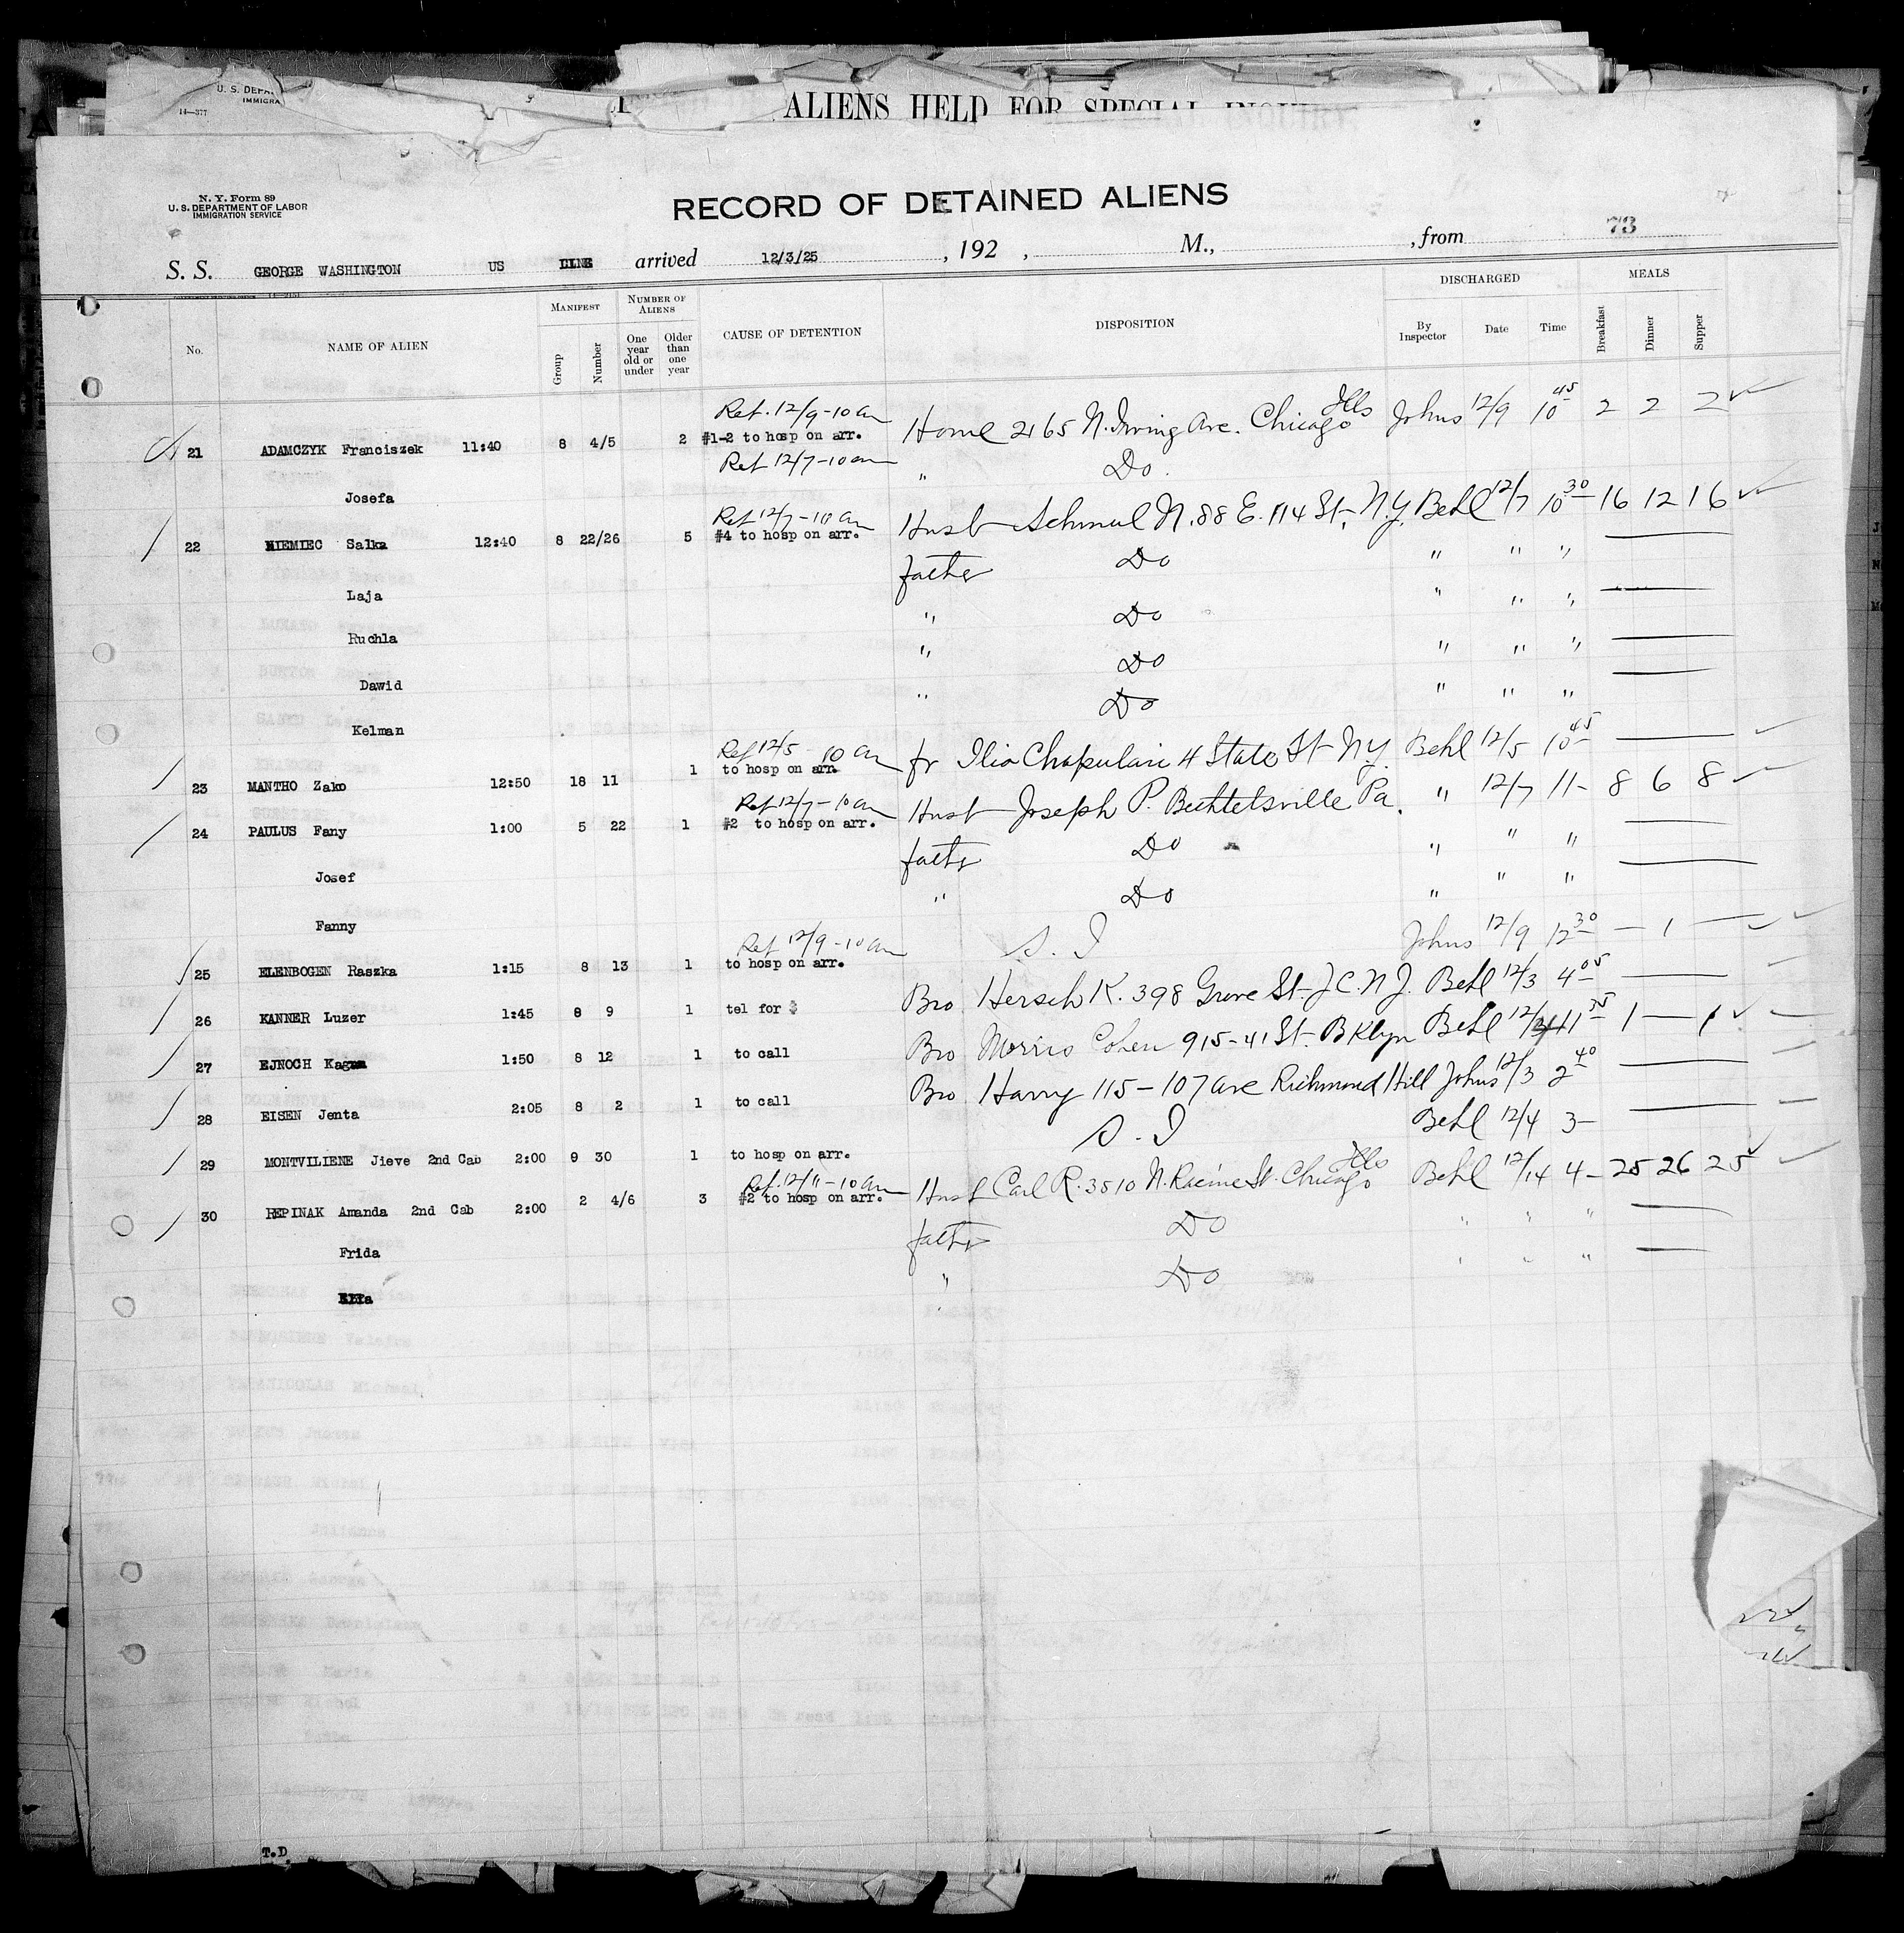 U. S. DEPA
IMMIGRA
14—377
ALIENS HELD FOR SPECIAL INQUIRY
N. Y. Form 89
U. S. DEPARTMENT OF LABOR
IMMIGRATION SERVICE
RECORD OF DETAINED ALIENS
73
S. S. GEORGE WASHINGTON US LINE arrived 12/3/25, 192 , M., , from
No. NAME OF ALIEN MANIFEST Group Number NUMBER OF ALIENS One year old or under Older than one year CAUSE OF DETENTION DISPOSITION DISCHARGED By Inspector Date Time MEALS Breakfast Dinner Supper
Ret. 12/9-10 am
21 ADAMCZYK Franciszek 11:40 8 4/5 2 #1-2 to hosp on arr. Home 2165 N. Irving Ave. Chicago Ills Johns 12/9 10 45 2 2 2
Ret 12/7-10 am
Josefa " Do.
Ret 12/7-10 am
22 NIEMIEC Salka 12:40 8 22/26 5 #4 to hosp on arr. Husb Schmul N. 88 E. 114 St. N.Y. Behl 12/7 10 30 16 12 16
Laja father Do " " "
Ruchla " Do " " "
Dawid " Do " " "
Kelman " Do " " "
Ref 12/5 10 am
23 MANTHO Zako 12:50 18 11 1 to hosp on arr. fr Ilia Chapulari 4 State St N.Y. Behl 12/5 10 45
Ref 12/7-10 am
24 PAULUS Fany 1:00 5 22 1 #2 to hosp on arr. Husb Joseph P. Bechtelsville Pa. " 12/7 11- 8 6 8
Josef father Do " " "
Fanny " Do " " "
Ref 12/9-10 am
25 ELENBOGEN Raszka 1:15 8 13 1 to hosp on arr. S. I Johns 12/9 12 30 — 1 —
26 KANNER Luzer 1:45 8 9 1 tel for Bro Hersch K. 398 Grove St- J C. N J. Behl 12/3 4 05
27 EJNOCH 1:50 8 12 1 to call Bro Morris Cohen 915-41 St. Bklyn Behl 12/4 11 35 1 — 1
28 EISEN Jenta 2:05 8 2 1 to call Bro Harry 115-107 ave Richmond Hill Johns 12/3 2 40
29 MONTVILIENE Jieve 2nd Cab 2:00 9 30 1 to hosp on arr. S. I Behl 12/4 3-
Ref. 12/11-10 am
30 REPINAK Amanda 2nd Cab 2:00 2 4/6 3 #2 to hosp on arr. Husb Carl R. 3510 N. Racine St. Chicago Ills Behl 12/14 4- 25 26 25
Frida father Do " " "
" Do " " "
T.D.